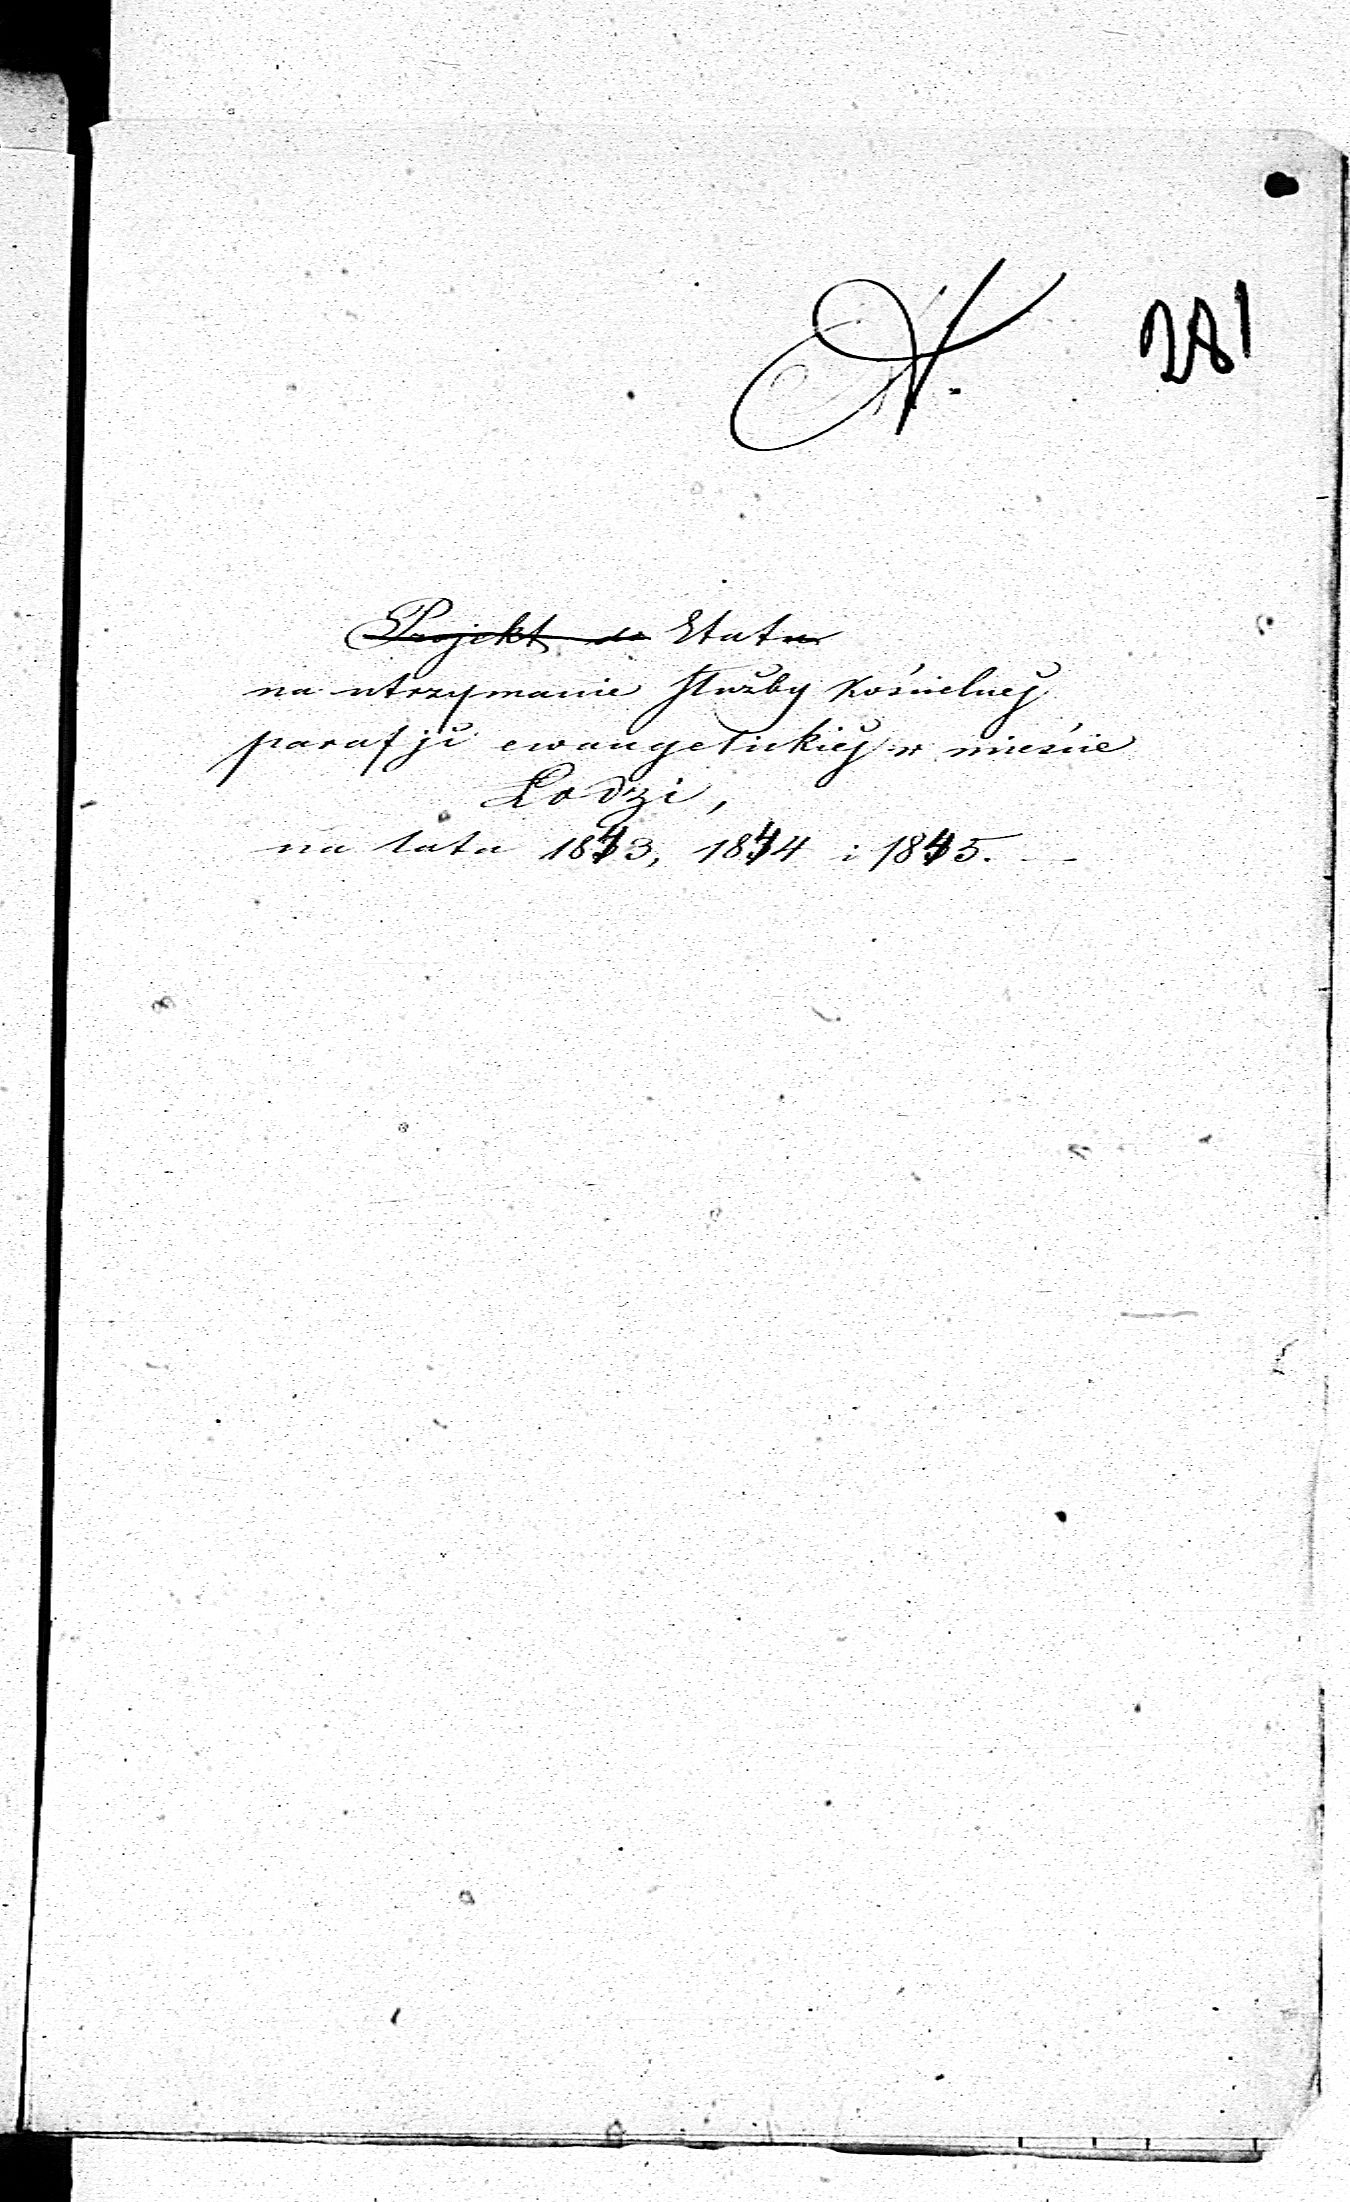 281
Projekt do Etatu
na utrzymanie Służby Kościelnéj
parafji ewangelickiéj w mieście
Łodzi,
na lata 1843, 1844 i 1845.